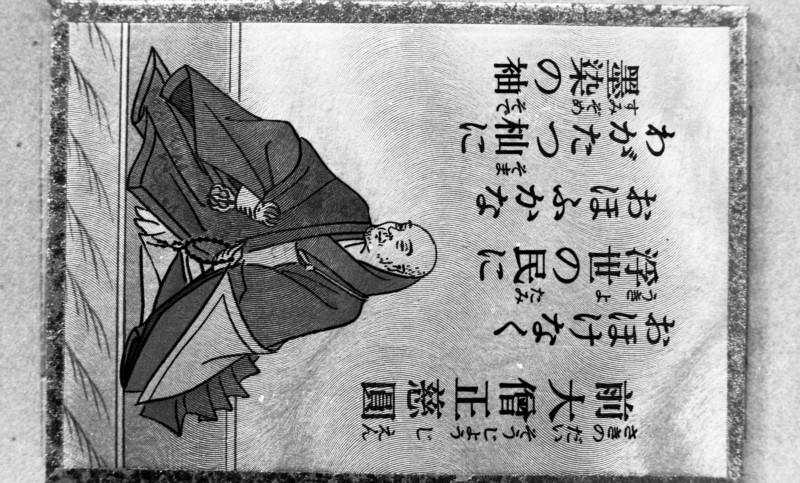 前大僧正慈圓
さきのだいそうじょうじえん
おほけなく
浮世の民に
うきよ たみ
おほふかな
わがたつ杣に
そま
墨染の袖
すみぞめ そで